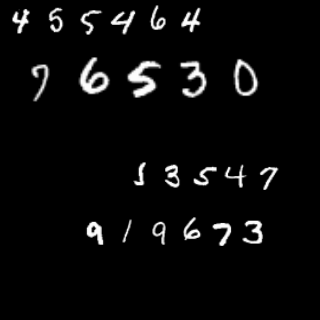 455464
76530
53547
919673